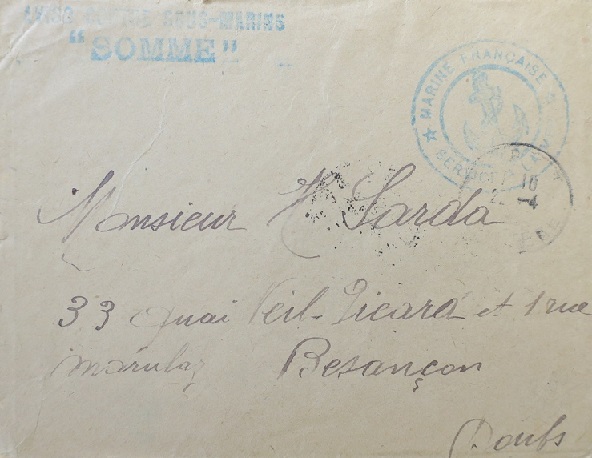 AVISO CONTRE SOUS-MARINS
"SOMME"
★ MARINE FRANÇAISE ★
SERVICE
18
4
Monsieur H Sarda
33 quai Veil-Picard et 1 rue
Marulaz Besançon
Doubs